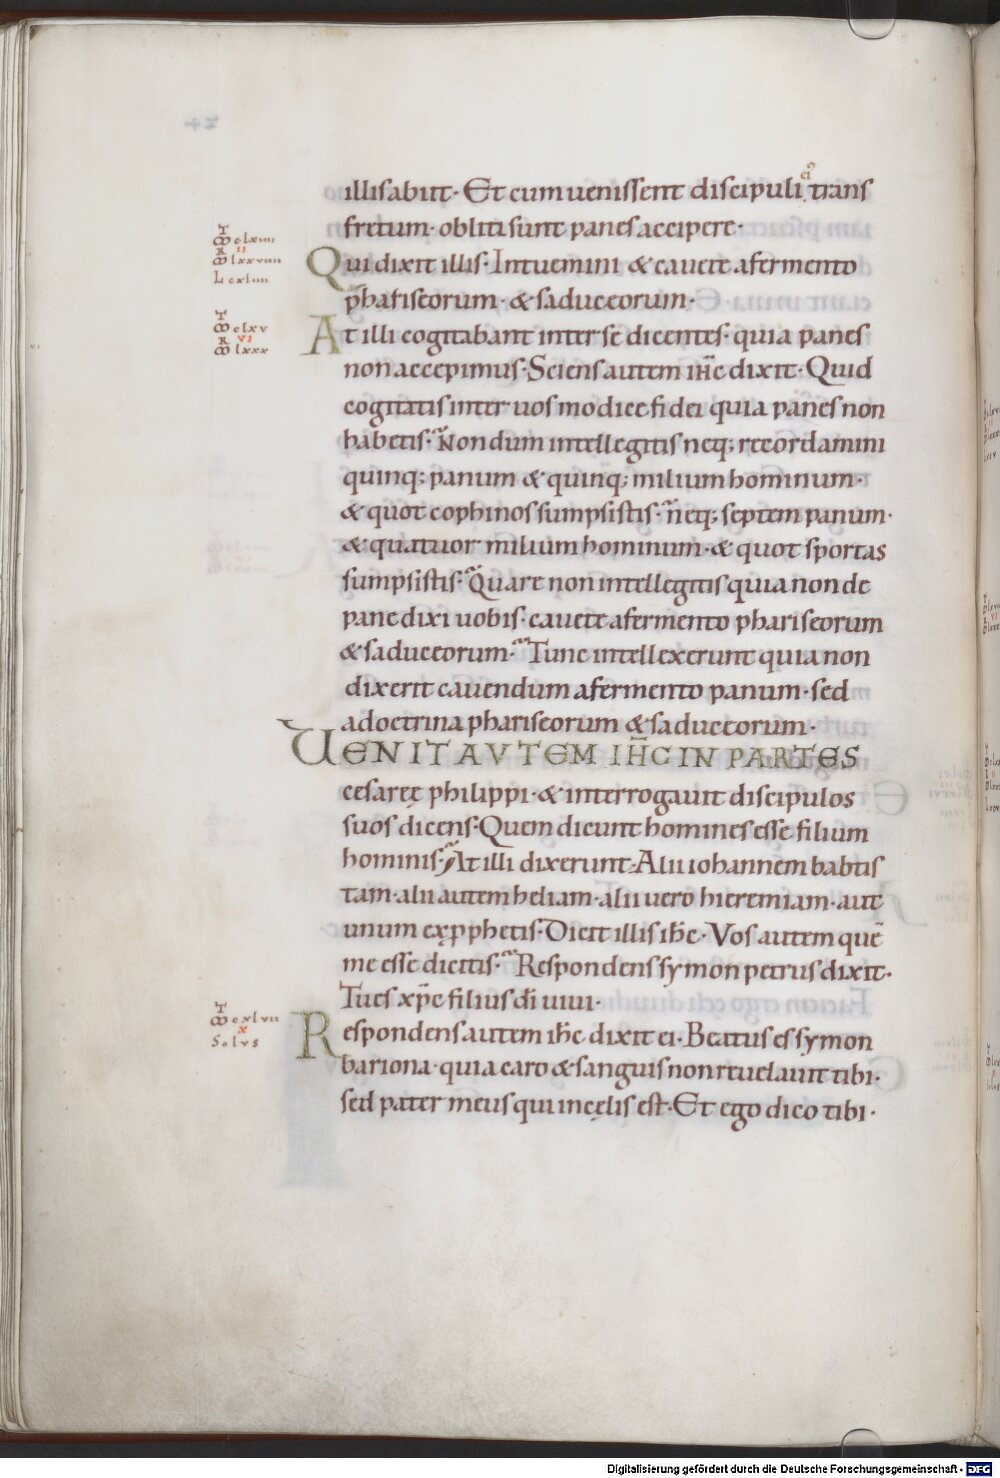 illis abiit · Et cum uenissent discipuli ei᾿ trans
fretum · obliti sunt panes accipere ·
Qui dixit illis · Intuemini & cauete a fermento
phariseorum · & saduceorum ·
At illi cogitabant inter se dicentes · quia panes
non accepimus · Sciens autem ih̅c dixit · Quid
cogitatis inter uos modice fidei quia panes non
habetis · Nondum intellegitis neq; recordamini
quinq; panum & quinq; milium hominum ·
& quot cophinos sumpsistis · neq; septem panum ·
& quattuor milium hominum · & quot sportas
sumpsistis · Quare non intellegitis quia non de
pane dixi uobis · cauete a fermento phariseorum
& saduceorum · Tunc intellexerunt quia non
dixerit cauendum a fermento panum · sed
a doctrina phariseorum & saduceorum ·
UENIT AVTEM IH̅C IN PARTES
cesareę philippi · & interrogauit discipulos
suos dicens · Quem dicunt homines esse filium
hominis · At illi dixerunt · Alii iohannem babtis
tam · alii autem heliam · alii uero hieremiam · aut
unum ex pphetis · Dicit illis ih̅c · Vos autem quē
me esse dicitis · Respondens symon petrus dixit ·
Tu es xp̅c filius di̅ uiui ·
Respondens autem ih̅c dixit ei · Beatus es symon
bariona · quia caro & sanguis non reuelauit tibi ·
sed pater meus qui in cęlis est · Et ego dico tibi ·
T
M clxv
R VI
M lxxx
T
R
X
Solvs
Digitalisierung gefördert durch die Deutsche Forschungsgemeinschaft - DFG